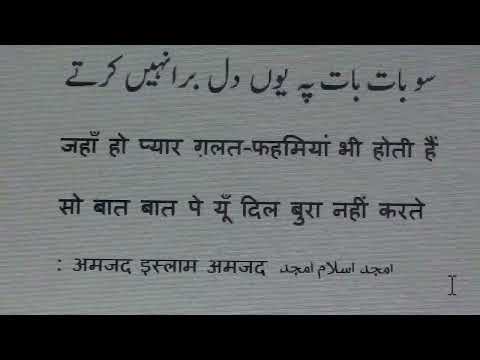 سو بات بات پہ یوں دل برا نہیں کرتے
जहाँ हो प्यार ग़लत-फहमियां भी होती हैं
सो बात बात पे यूँ दिल बुरा नहीं करते
: अमजद इस्लाम अमजद امجد اسلام امجد